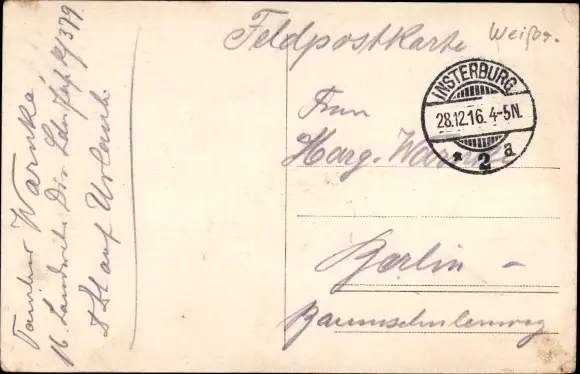 Feldpostkarte
Weißbr.
INSTERBURG
28.12.16. 4-5N.
* 2 a
Frau
Marg. Warnke
Berlin -
Baumschulenweg
Warnke,
16. Landwehr Div. Ldw. Inf. R/379.
z Zt auf Urlaub